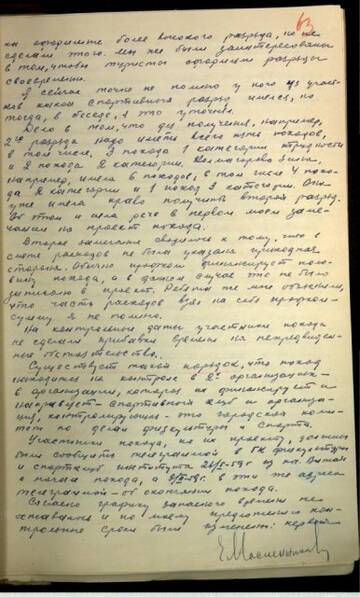 63
на оформление более высокого разряда, но не
сделали этого. Мы же были заинтересованы
в том, чтобы туристы оформляли разряды
своевременно.
Я сейчас точно не помню у кого из участ-
ков какой спортивный разряд имелся, но
тогда, в беседе, я это уточнял.
Дело в том, что для получения, например,
2го разряда надо иметь всего пять походов,
в том числе, 3 похода 1 категории трудности
и 2 похода 2 категории. Колмогорова Зина,
например, имела 6 походов, в том числе 4 похо-
да 2 категории и 1 поход 3 категории. Она
уже имела право получить второй разряд.
Об этом и шла речь в первом моем заме-
чании на проект похода.
Второе замечание сводилось к тому, что в
смете расходов не была указана приходная
сторона. Обычно профком финансирует поло-
вину похода, а в данном случае это не было
записано в проект. Ребята же мне объяснили,
что часть расходов взял на себя профком
сумму я не помню.
На контрольные даты участники похода
не сделали прибавки времени на непредвиден-
ные обстоятельства.
Существует такой порядок, что поход
находится на контроле в 2х организациях -
в организации, которая их финансирует и
направляет - спортивный клуб и организа-
ция, контролирующая - это городской коми-
тет по делам физкультуры и спорта.
Участники похода, по их проекту, должны
были сообщить телеграммой в ГК физкультуры
и спортклуб института 26/I-59г из пос. Вижай
о начале похода, а в эти же адреса
телеграммой - об окончании похода.
Согласно графику запасного времени не
оставалось и по моему предложению кон-
трольные сроки были изменены: первый
Е Масленников